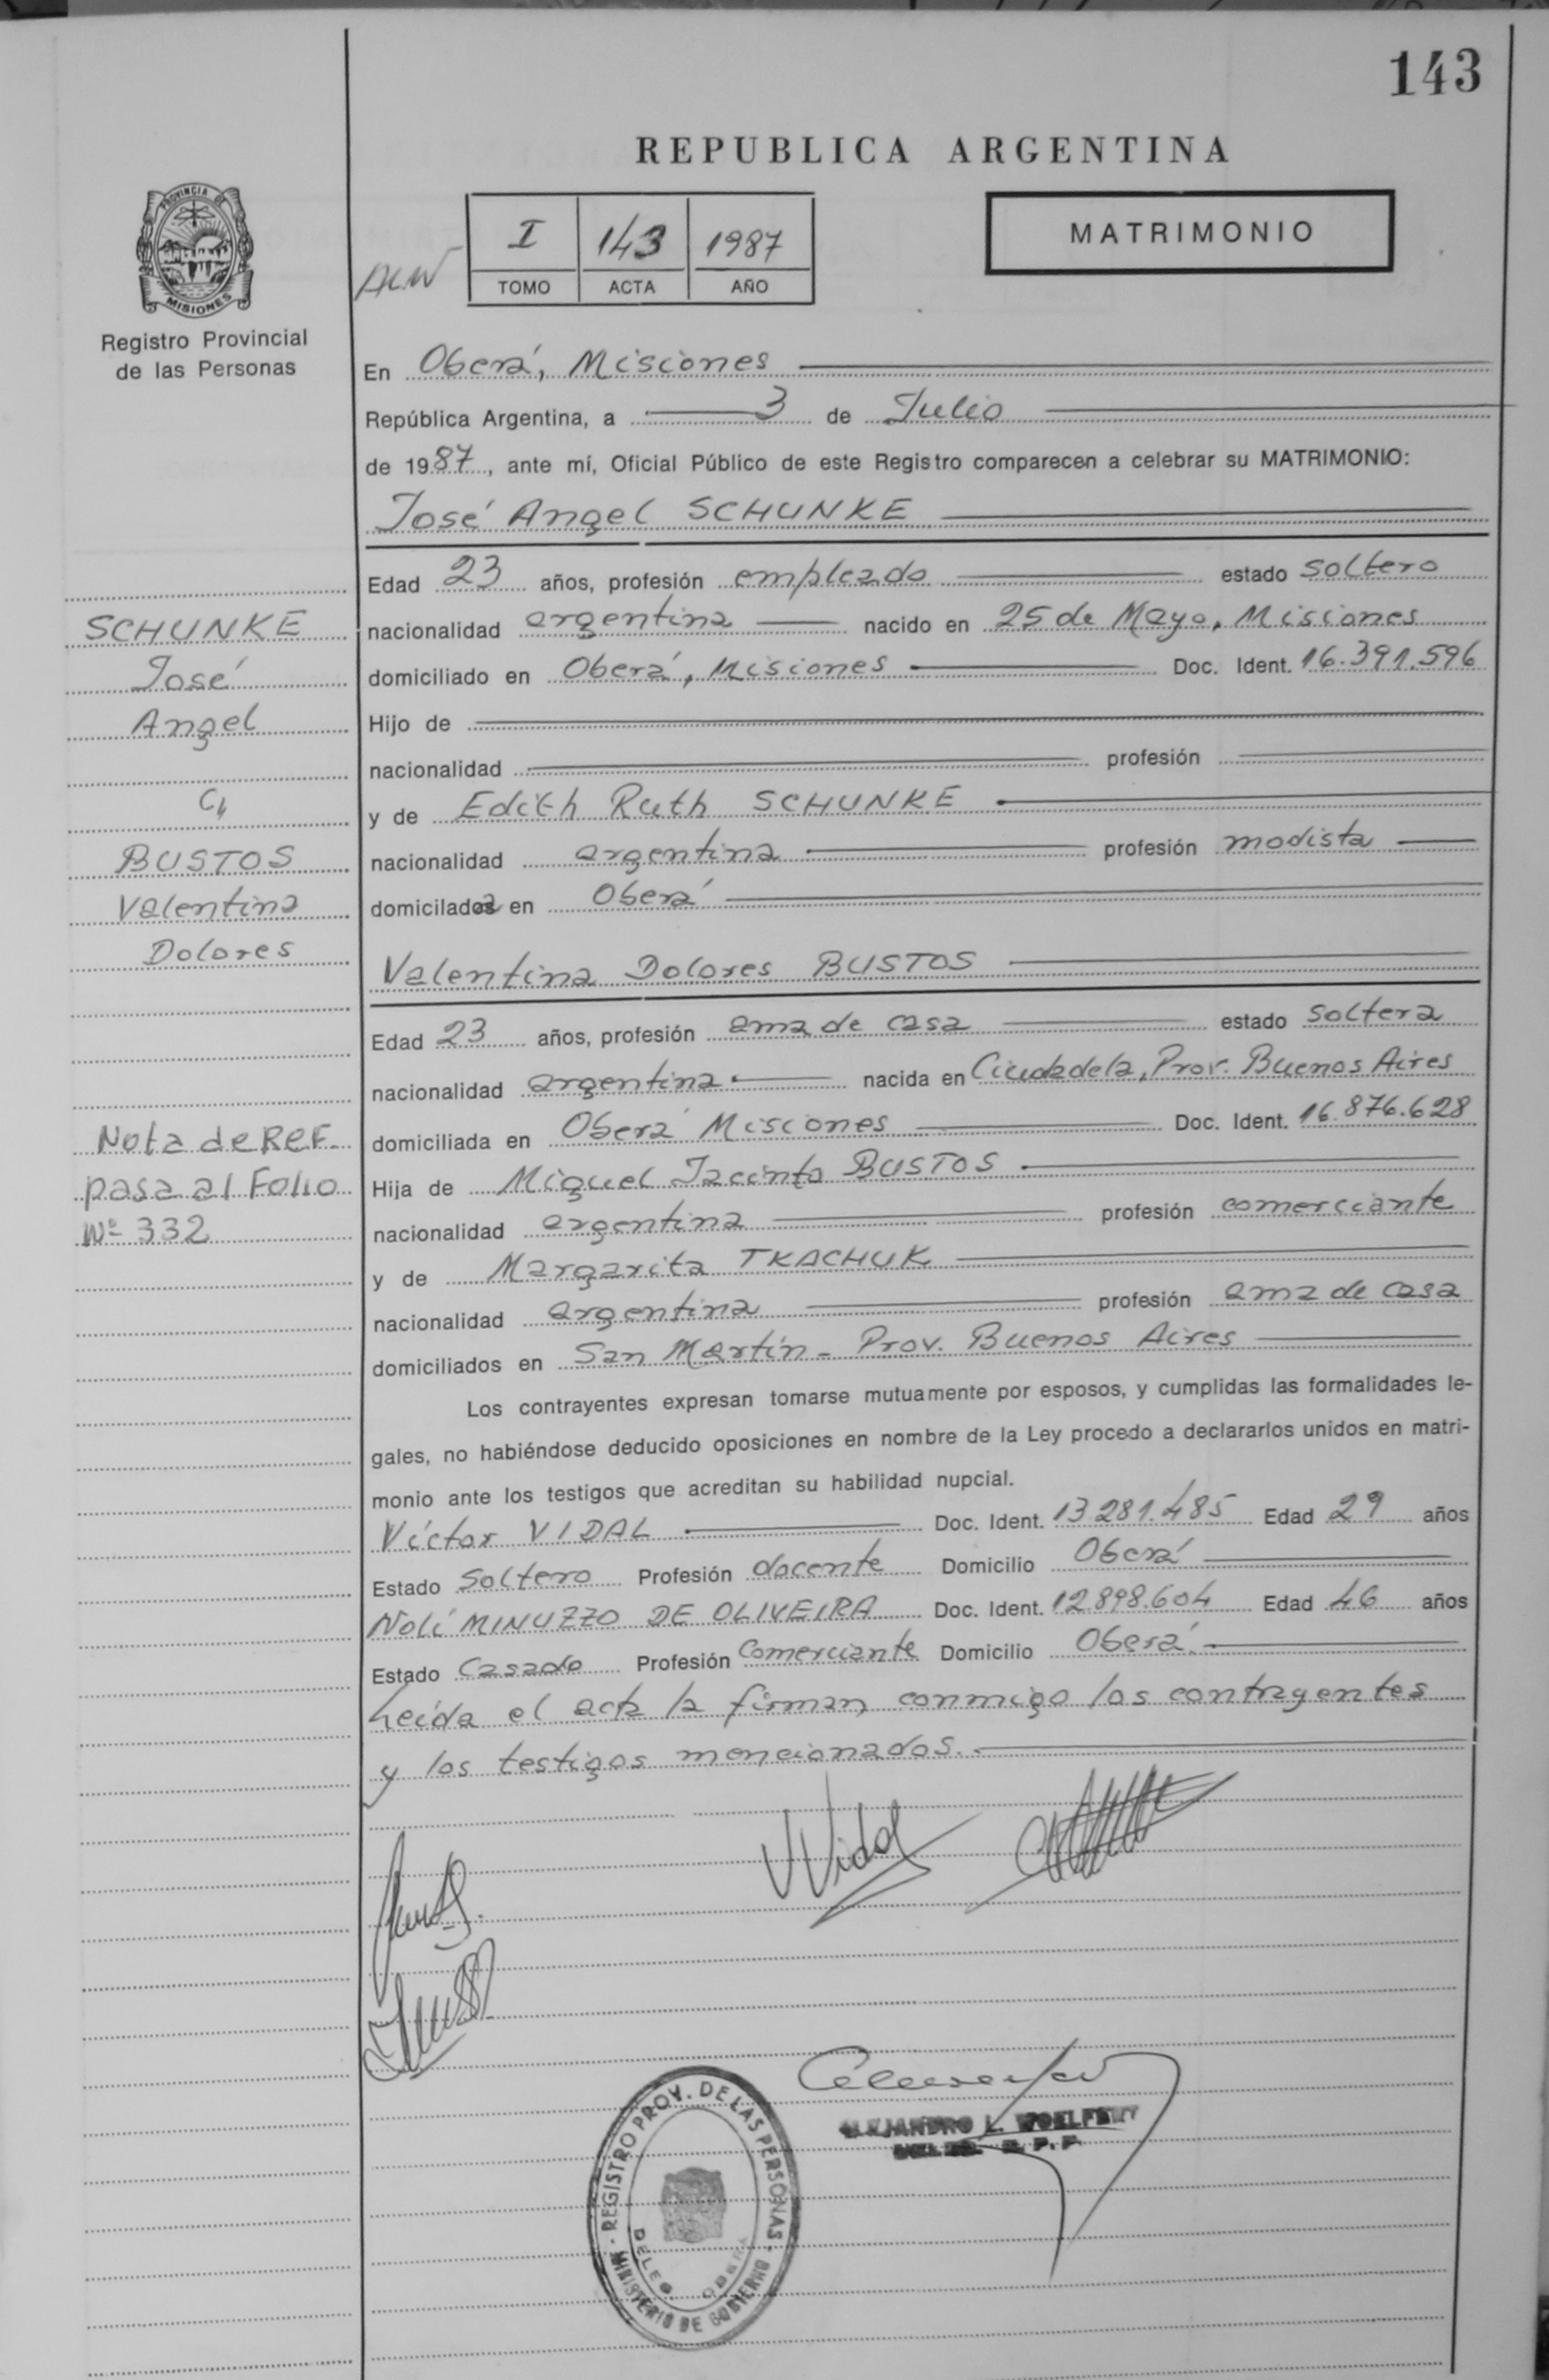 143
REPUBLICA ARGENTINA
PROVINCIA DE
MISIONES
Registro Provincial
de las Personas
I 143 1987
TOMO ACTA AÑO
MATRIMONIO
En Oberá, Misiones
República Argentina, a 3 de Julio
de 1987, ante mí, Oficial Público de este Registro comparecen a celebrar su MATRIMONIO:
José Angel SCHUNKE
Edad 23 años, profesión empleado estado soltero
nacionalidad argentina nacido en 25 de Mayo, Misiones
domiciliado en Oberá, Misiones Doc. Ident. 16.391.596
Hijo de
nacionalidad profesión
y de Edith Ruth SCHUNKE
nacionalidad argentina profesión modista
domiciliada en Oberá
Valentina Dolores BUSTOS
Edad 23 años, profesión ama de casa estado soltera
nacionalidad argentina nacida en Ciudadela, Prov. Buenos Aires
domiciliada en Oberá Misiones Doc. Ident. 16.876.628
Hija de Miguel Jacinto BUSTOS
nacionalidad argentina profesión comerciante
y de Margarita TKACHUK
nacionalidad argentina profesión ama de casa
domiciliados en San Martín - Prov. Buenos Aires
Los contrayentes expresan tomarse mutuamente por esposos, y cumplidas las formalidades le-
gales, no habiéndose deducido oposiciones en nombre de la Ley procedo a declararlos unidos en matri-
monio ante los testigos que acreditan su habilidad nupcial.
Víctor VIDAL Doc. Ident. 13.281.485 Edad 29 años
Estado Soltero Profesión docente Domicilio Oberá
Nolí MINUZZO DE OLIVEIRA Doc. Ident. 12.898.604 Edad 46 años
Estado Casado Profesión Comerciante Domicilio Oberá
Leída el acta la firman conmigo los contrayentes
y los testigos mencionados.
SCHUNKE
José
Angel
c/
BUSTOS
Valentina
Dolores
Nota de REF.
pasa al Folio
Nº 332
VVidal
ALEJANDRO L.
REGISTRO PROV. DE LAS PERSONAS
MINISTERIO DE GOBIERNO
DELEG. OBERA